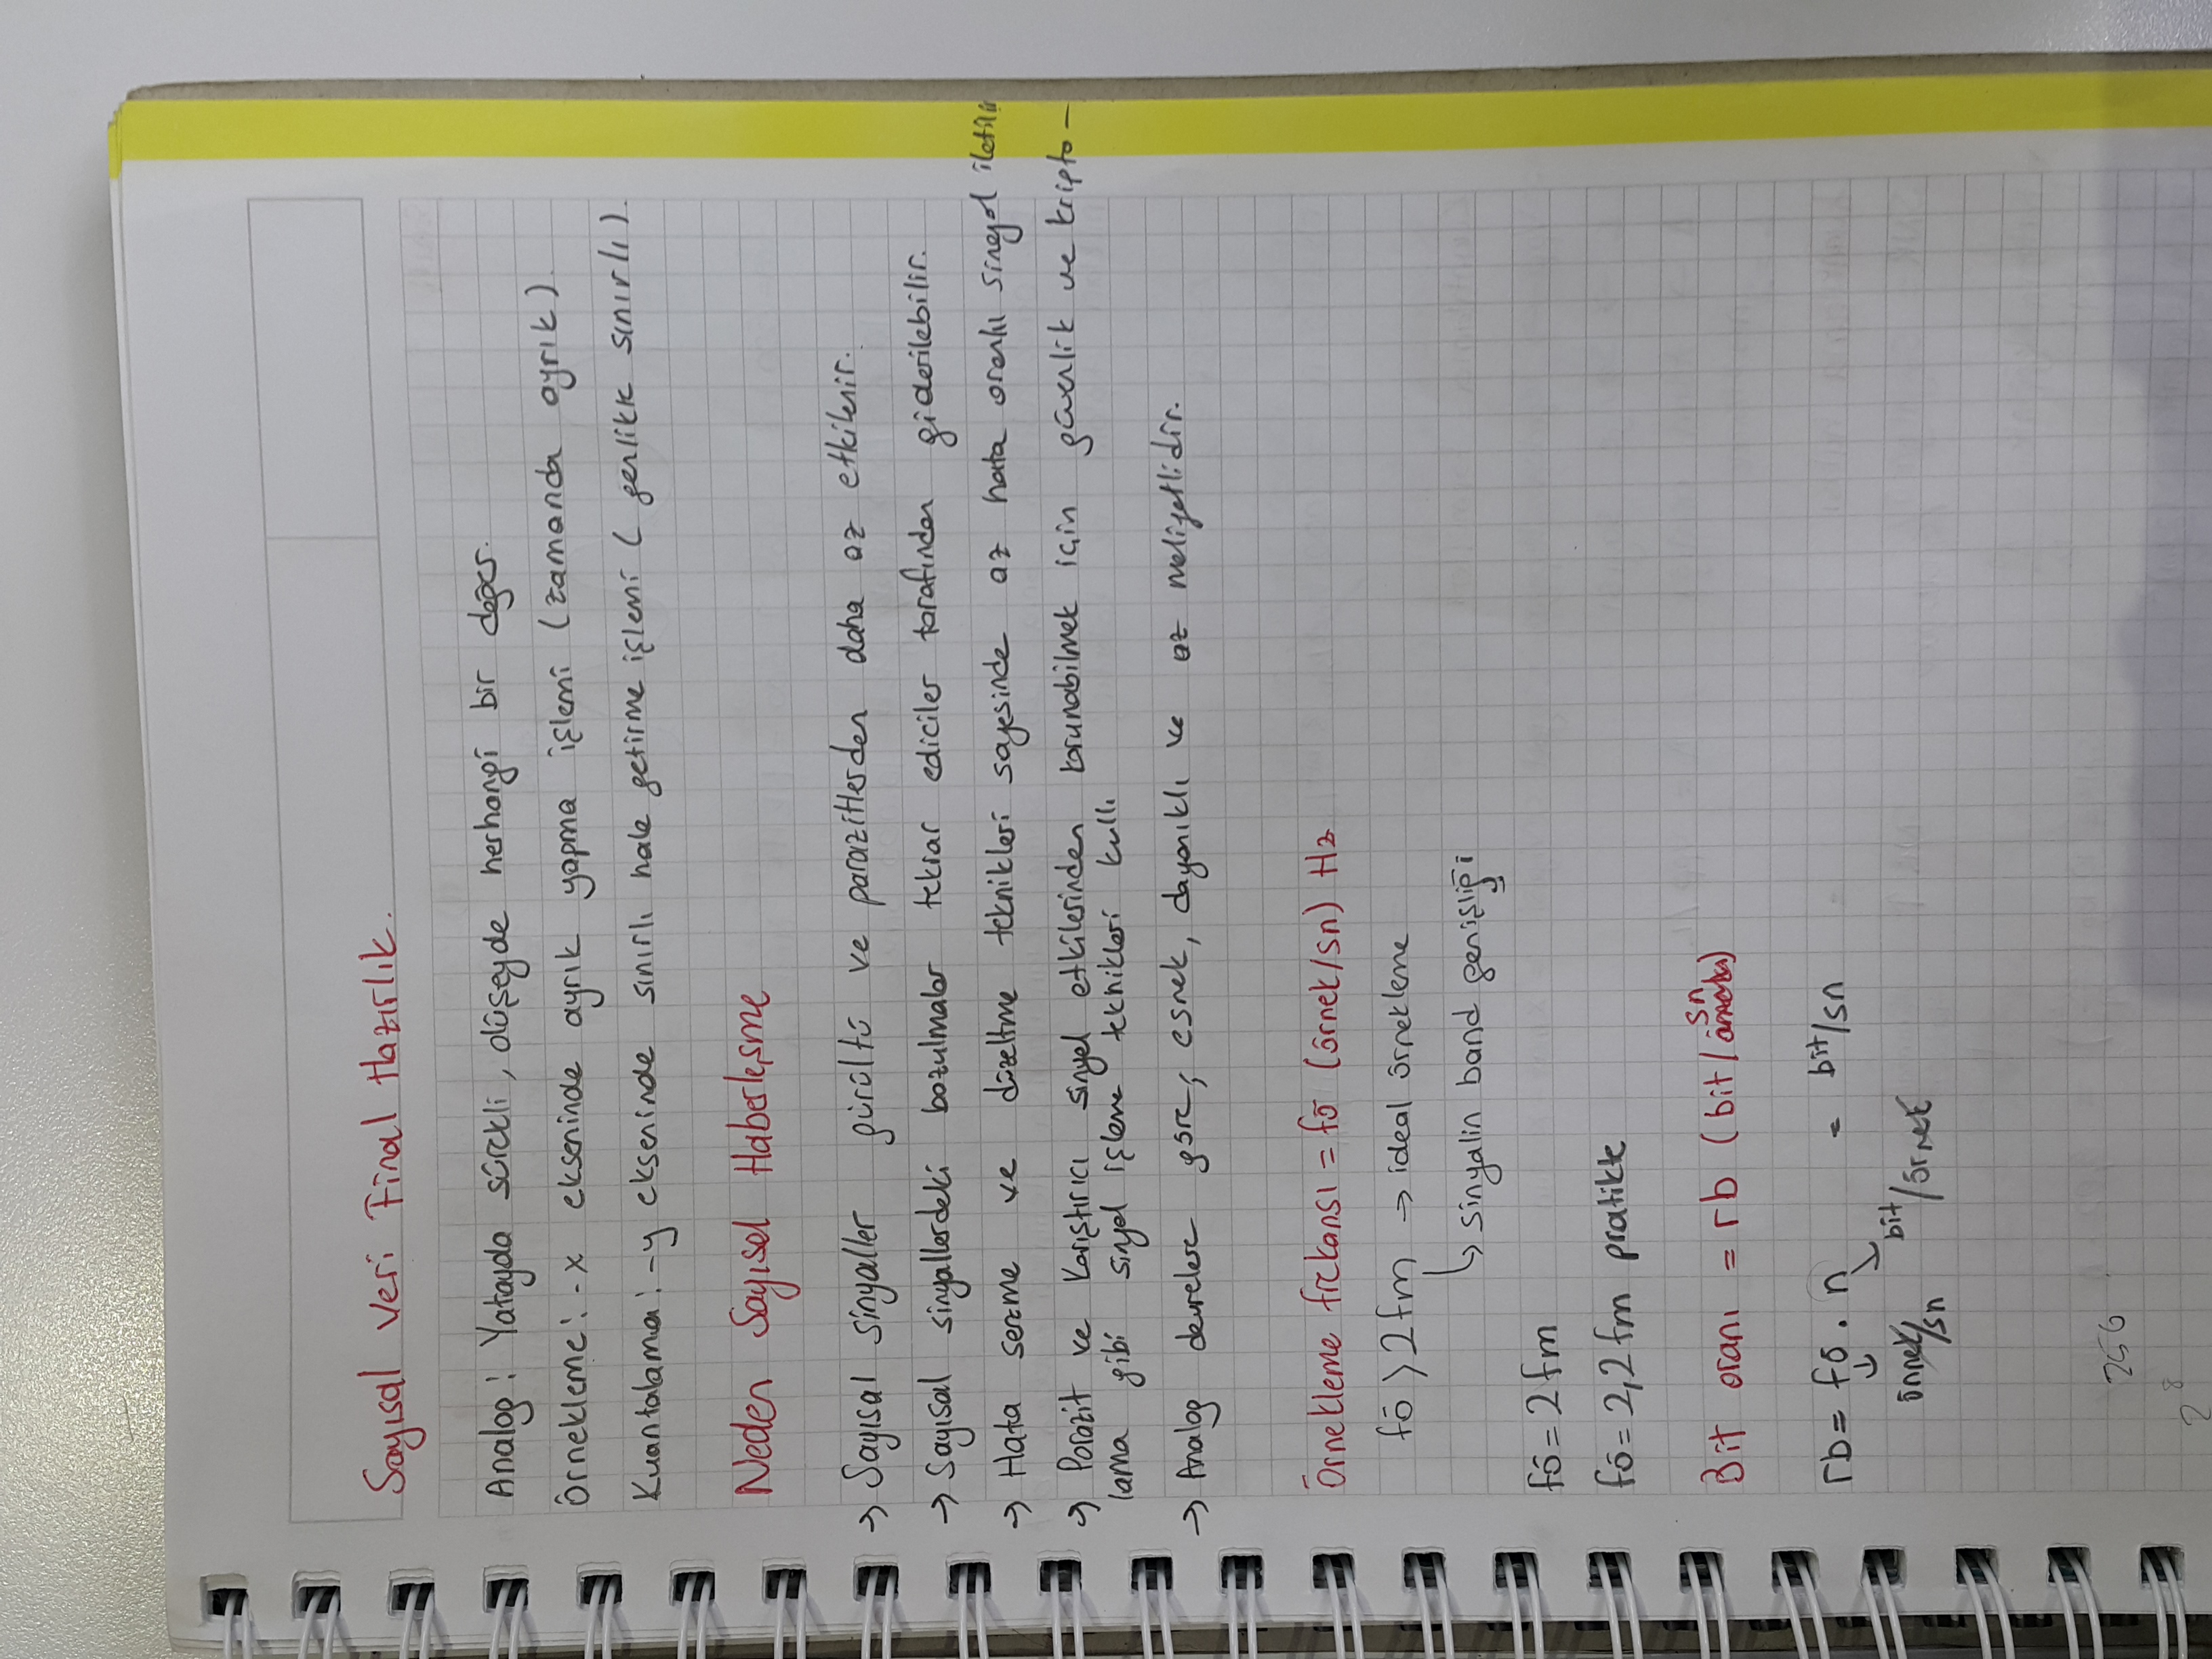 Sayısal Veri Final Hazırlık.
Analog: Yatayda sürekli, düşeyde herhangi bir değer.
Örnekleme: -x ekseninde ayrık yapma işlemi (zamanda ayrık).
Kuantalama: -y ekseninde sınırlı hale getirme işlemi (genlikte sınırlı).
Neden Sayısal Haberleşme
→ Sayısal sinyaller gürültü ve parazitlerden daha az etkilenir.
→ Sayısal sinyallerdeki bozulmalar tekrar ediciler tarafından giderilebilir.
→ Hata sezme ve düzeltme teknikleri sayesinde az hata oranlı sinyal iletilir
→ Parazit ve Karıştırıcı sinyal etkilerinden korunabilmek için güvenlik ve kripto-
lama gibi sinyal işleme teknikleri kull.
→ Analog devrelere göre; esnek, dayanıklı ve az maliyetlidir.
Örnekleme frekansı = fö (örnek/sn) Hz
fö > 2fm → ideal örnekleme
↳ sinyalin band genişliği
fö = 2fm
fö = 2,2 fm pratikte
Bit oranı = rb (bit/sn)
rb = fö . n = bit/sn
örnek/sn bit/örnek
256
2^8